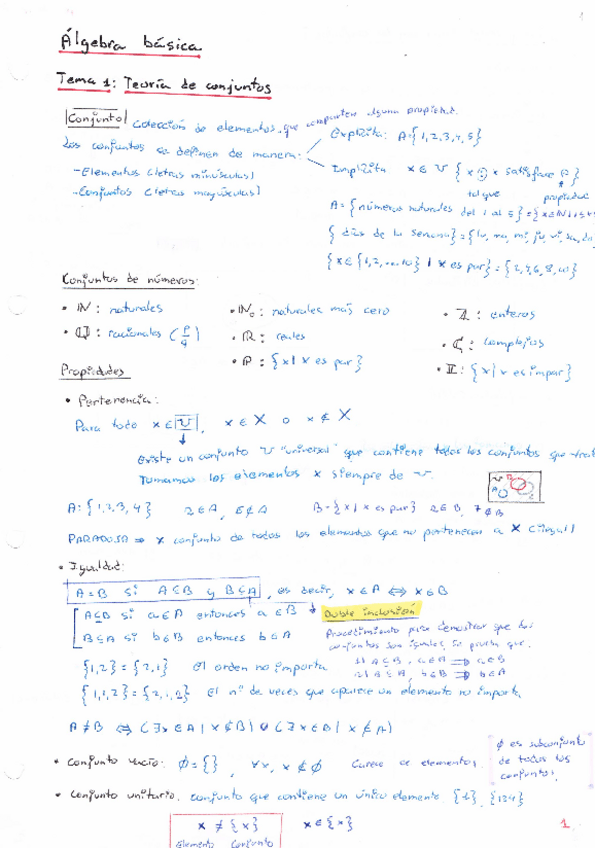 Álgebra básica
Tema 1: Teoría de conjuntos
Conjunto Colección de elementos, que comparten alguna propiedad.
Los conjuntos se definen de manera:
Explícita: A={1,2,3,4,5}
-Elementos (letras minúsculas)
-Conjuntos (letras mayúsculas)
Implícita x ∈ U { x | x satisface P}
tal que propiedad
A={números naturales del 1 al 5}=
{días de la semana}={lu, ma, mi, ju, vi, sa, do
{x∈{1,2,...,10} | x es par}={2,4,6,8,10}
Conjuntos de números:
• ℕ: naturales • ℕ₀: naturales más cero • ℤ: enteros
• ℚ: racionales (p/q) • ℝ: reales • ℂ: complejos
• ℙ: {x | x es par} • 𝕀: {x | x es impar}
Propiedades
• Pertenencia:
Para todo x∈U, x∈X o x∉X
Existe un conjunto U "universal" que contiene todos los conjuntos que
Tomamos los elementos x siempre de U.
A:{1,2,3,4} 2∈A, 5∉A B={x | x es par} 2∈B, 7∉B
PARADOJA ⇒ X conjunto de todos los elementos que no pertenecen a X
• Igualdad:
A=B si A⊆B y B⊆A, es decir, x∈A ⇔ x∈B
A⊆B si a∈A entonces a∈B
Doble inclusión
B⊆A si b∈B entonces b∈A
Procedimiento para demostrar que dos
conjuntos son iguales, se prueba que:
1) A⊆B, a∈A ⇒ a∈B
2) A⊇B, b∈B ⇒ b∈A
{1,2}={2,1} el orden no importa
el nº de veces que aparece un elemento no importa
A≠B ⇔ (∃x∈A | x∉B) ∪ (∃x∈B | x∉A)
• Conjunto vacío: ∅={}, ∀x, x∉∅ Carece de elementos.
∅ es subconjunto
de todos los
conjuntos.
• Conjunto unitario. Conjunto que contiene un único elemento {1}, {134}
x ≠ {x} x∈{x}
Elemento Conjunto
1